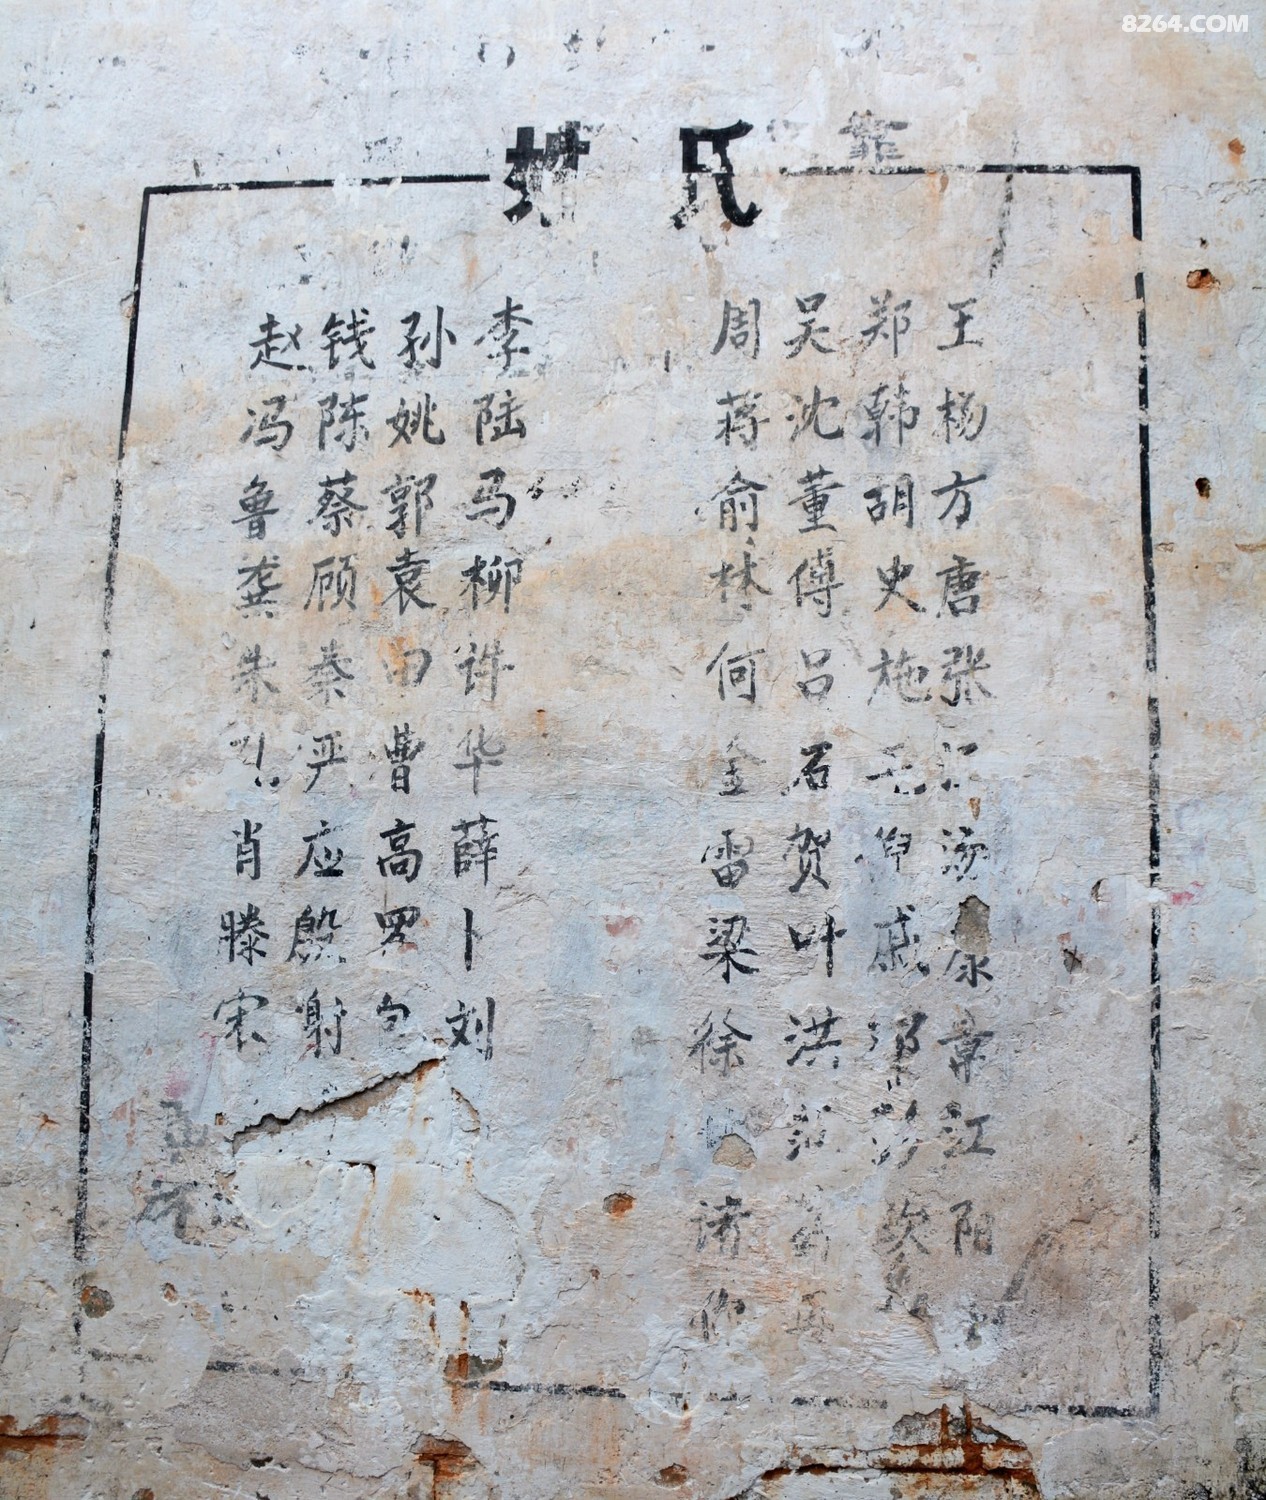 8264.COM
姓 氏
赵钱孙李 周吴郑王
冯陈姚陆 蒋沈韩杨
鲁蔡郭马 俞董胡方
龚顾袁柳 林傅史唐
朱秦田许 何吕施张
严曹华 金石毛
肖应高薛 雷贺倪汤
滕殷罗卜 梁叶戚康
宋射包刘 徐洪邹章
彭江
诸 阳